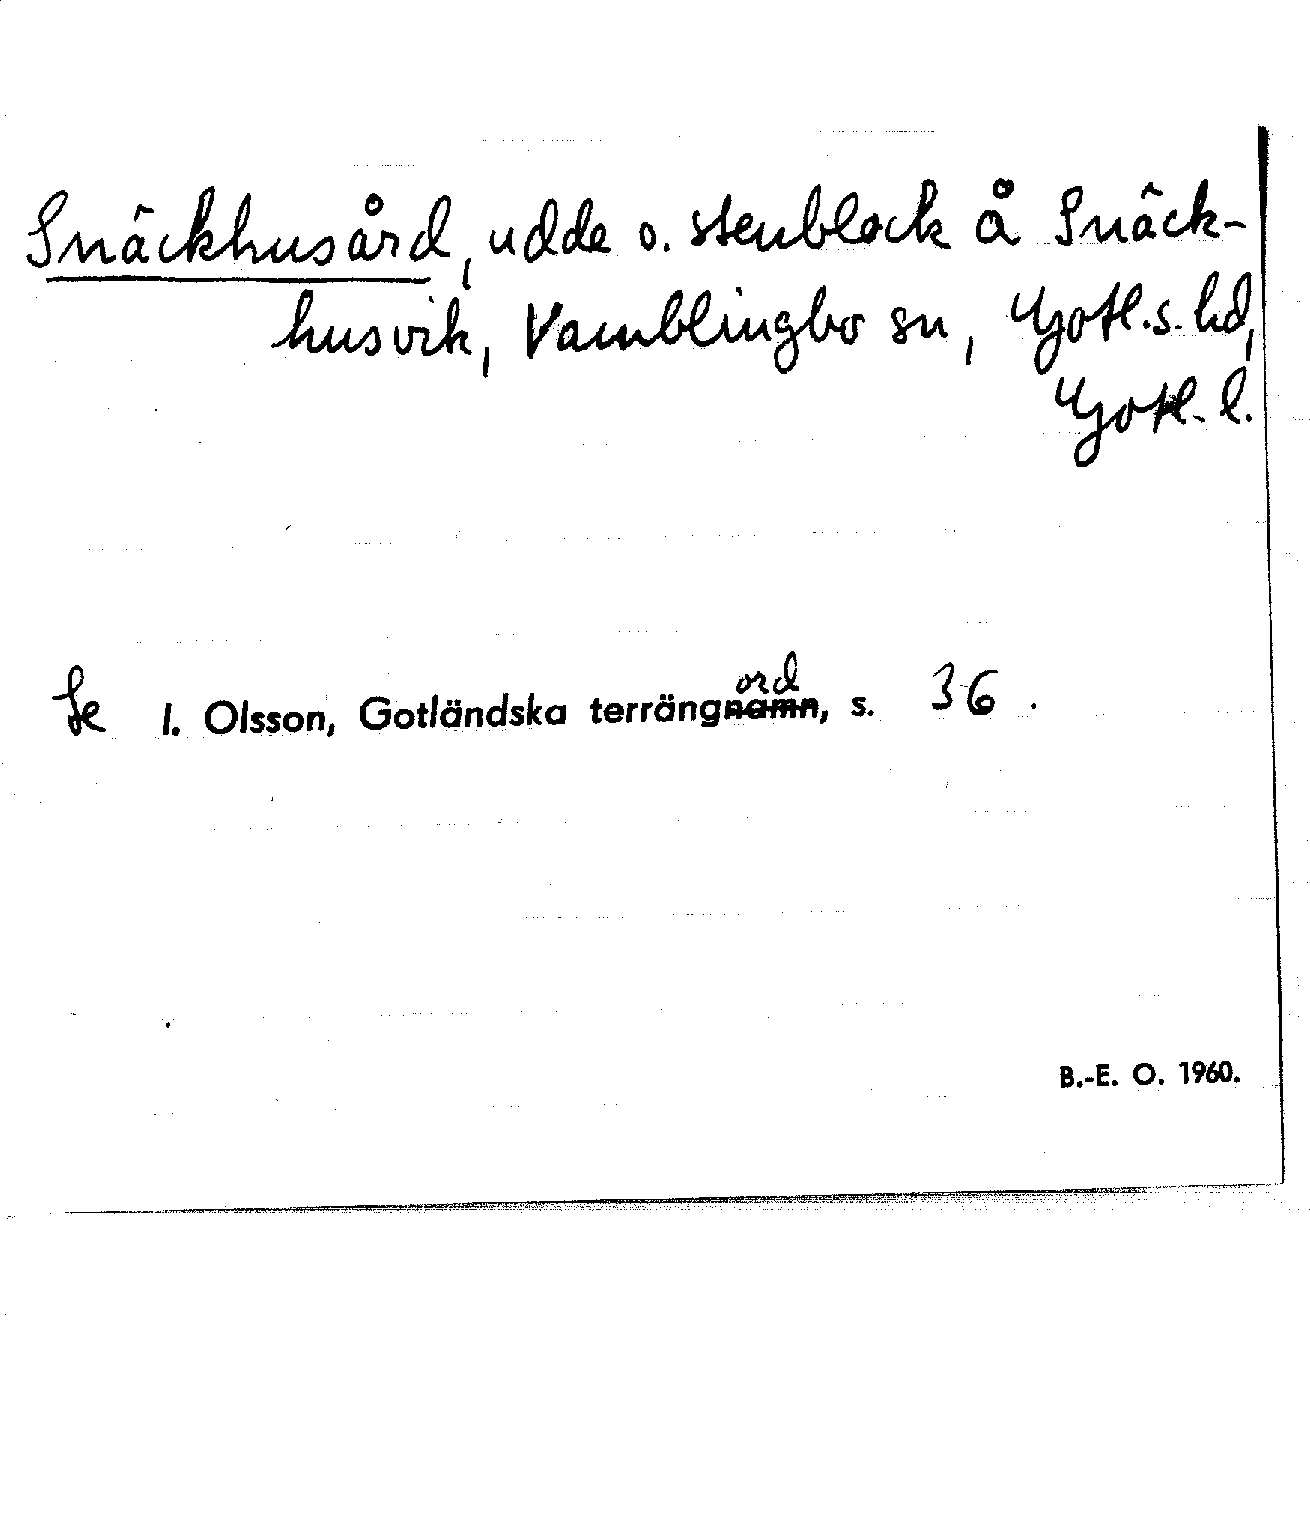 Snäckhusård, udde o. stenblock å Snäck-
husvik, Vamblingbo sn, Gotl.s. hd,
Gotl. l.
Se I. Olsson, Gotländska terrängnamn, s. 36.
ord
B.-E. O. 1960.